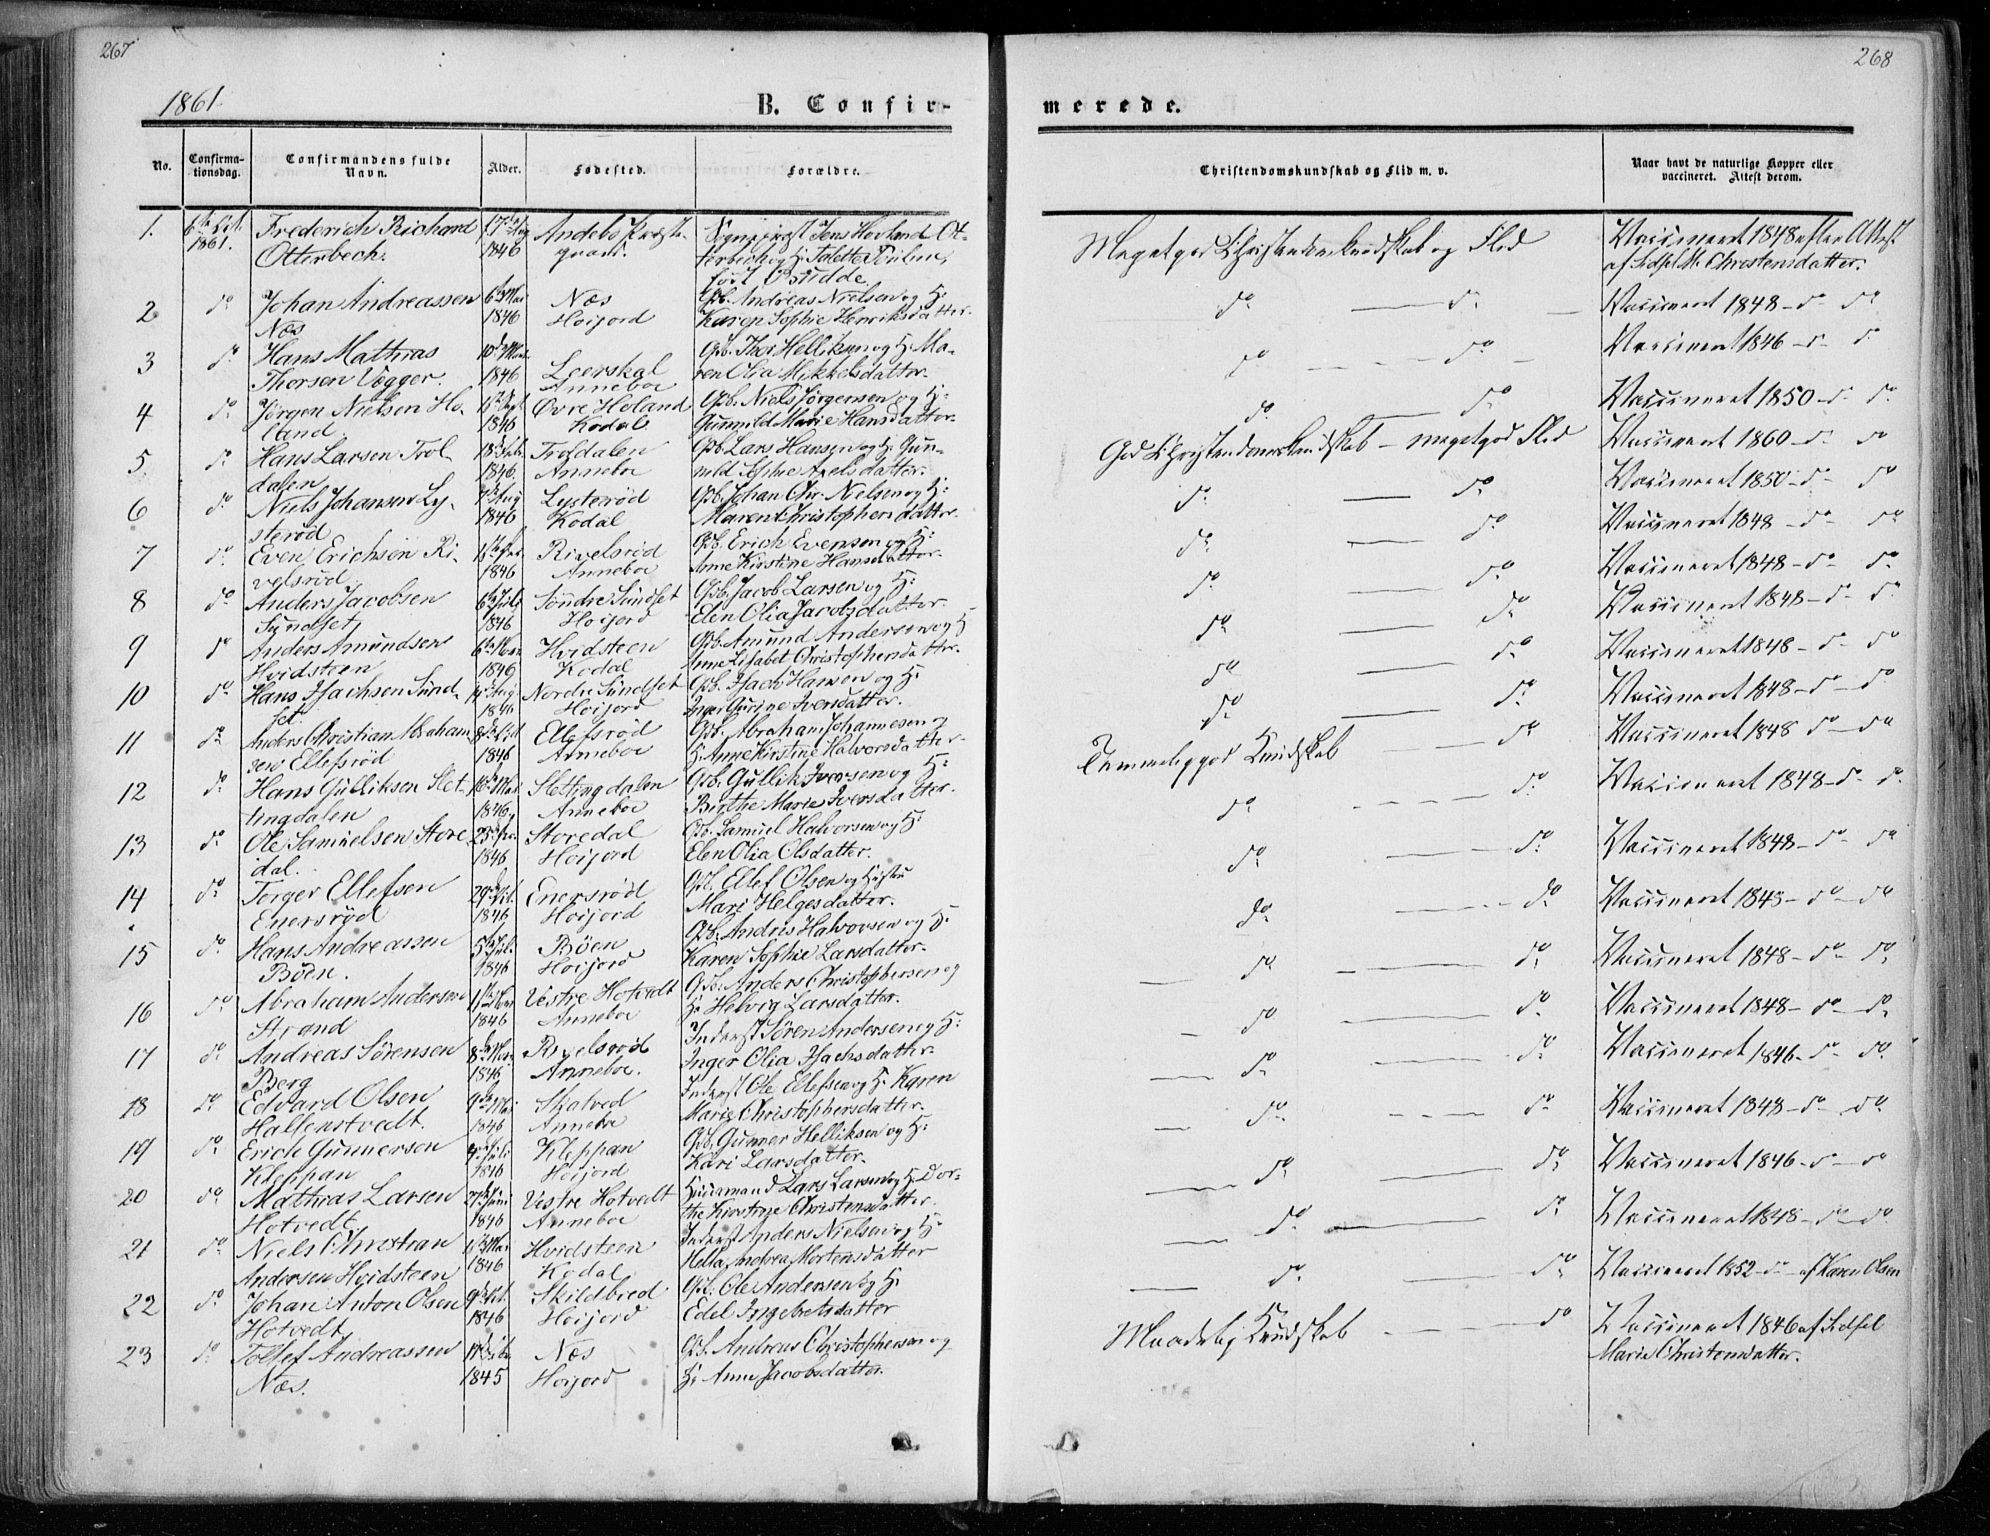 267
268
1861
B. Confir-
merede.
No.
Confirma-
tionsdag.
Confirmandens fulde
Navn.
Alder.
Fødested.
Forældre.
Christendomskundskab og Flid m. v.
Naar havt de naturlige Kopper eller
vaccineret. Attest derom.
1.
1861.
Frederich Richard
Otterbech.
1846
Andebo Præste-
gaard.
Sognepræst Jens Hovland Ot-
terbech og H:
født Budde
Meget god Christendomskundskab og Flid
Vaccineret 1848 efter Attest
af Sidsel M. Christensdatter.
2
do
Johan Andreassen
Næs
1846
Næs
Hoijord
Gb. Andreas Nielsen og H:
Karen Sophie Henriksdatter.
do — do
Vaccineret 1848 - do do
3
do
Hans Mathias
Thorsen Vegger.
1846
Leerskal
Anneboe
Gb. Thor Helliksen og H: Ma-
ren Olia Mikkelsdatter.
do - - do
Vaccineret 1846 - do do
4
do
Jørgen Nielsen Ho-
land.
1846
Øvre Holand
Kodal
Gb. Niels Jørgensen og H:
Gunnild Marie Hansdatter.
do — do
Vaccineret 1850 - do do
5
do
Hans Larsen Trol-
dalen
1846
Troldalen
Anneboe
Gb. Lars Hansen og H: Gun-
nild Sophie Axelsdatter.
God Christendomskundskab - meget god Flid
Vaccineret 1860 - do do
6
do
Niels Johansen Ly-
sterød
1846
Lysterød
Kodal
Gb. Johan Chr. Nielsen og H:
Maren Christophersdatter.
do — do
Vaccineret 1850 - do do
7
do
Even Erichsen Ri-
velsrød
1846
Rivelsrød
Anneboe
Gb. Erich Evensen og H:
Anne Kirstine Hansdatter.
do — do
Vaccineret 1848 - do do
8
do
Anders Jacobsen
Sundset
1846
Søndre Sundset
Hoijord
Gb. Jacob Larsen og H:
Elen Olia Jacobsdatter.
do — do
Vaccineret 1848 - do do
9
do
Anders Amundsen
Hvidsteen
1846
Hvidsteen
Kodal
Gb. Amund Andersen og H
Anne Lisabet Christophersdatter.
do — do
Vaccineret 1848 - do do
10
do
Hans Isachsen Sund-
set
1846
Nordre Sundset
Hoijord
Gb. Isach Hansen og H:
Inger Gurine Iversdatter.
do — do
Vaccineret 1848 - do do
11
do
Anders Christian Abraham-
sen Ellefsrød
1846
Ellefsrød
Anneboe
Gb. Abraham Johannesen og
H: Anne Kirstine Halvorsdatter.
do — do
Vaccineret 1848 - do do
12
do
Hans Gulliksen Slet-
tingdalen
1846
Slettingdalen
Anneboe
Gb. Gullik Iversen og H:
Birthe Marie Iversdatter.
Temmelig god Kundskab — do
Vaccineret 1848 do - do
13
do
Ole Samuelsen Store-
dal.
1846
Storedal
Hoijord
Gb. Samuel Halvorsen og H:
Elen Olia Olsdatter.
do - - - do
Vaccineret 1848 - do - do
14
do
Torger Ellefsen
Enersrød
1846
Enersrød
Hoijord
Gb. Ellef Olsen og Hustru
Mari Helgesdatter.
do — do
Vaccineret 1848 - do - do
15
do
Hans Andreassen
Bøen.
1846
Bøen
Hoijord
Gb. Andris Halvorsen og H:
Karen Sophie Larsdatter.
do — do
Vaccineret 1848 - do - do
16
do
Abraham Andersen
Strand
1846
Vestre Hotvedt
Anneboe
Gb. Anders Christophersen og
H: Helvig Larsdatter.
do — do
Vaccineret 1848 - do do
17
do
Andreas Sørensen
Berg
1846
Rivelsrød
Anneboe.
Inderst Søren Andersen og H:
Inger Olia Isachsdatter.
do — do
Vaccineret 1848 - do do
18
do
Edvard Olsen
Hallenstvedt.
1846
Skatved
Anneboe
Inderst Ole Ellefsen og H: Karen
Marie Christophersdatter.
do — do
Vaccineret 1846 - do do
19
do
Erich Gunnersen
Kleppan
1846
Kleppan
Hoijord
Gb. Gunner Helliksen og H:
Kari Larsdatter.
do - - - do
Vaccineret 1848 - do do
20
do
Mathias Larsen
Hotvedt
1846
Vestre Hotvedt
Anneboe
Huusmand Lars Larsen og H: Dor-
the Kirstine Christensdatter.
do — do
Vaccineret 1846 - do do
21
do
Niels Christian
Andersen Hvidsteen
1846
Hvidsteen
Kodal
Inderst Anders Nielsen og H:
Hella Andrea Mortensdatter
do — do
Vaccineret 1848 - do do
22
do
Johan Anton Olsen
Hotvedt
1846
Skildbred
Hoijord
Gb. Ole Andersen og H:
Edel Ingebretsdatter
do — do
Vaccineret 1852 - do - af Karen Olsen
23
do
Tollef Andreassen
Næs.
1845
Næs
Hoijord
Gb. Andreas Christophersen og
H: Anne Jacobsdatter.
Maadelig Kundskab — do
Vaccineret 1846 af Sidsel
Marie Christensdatter.